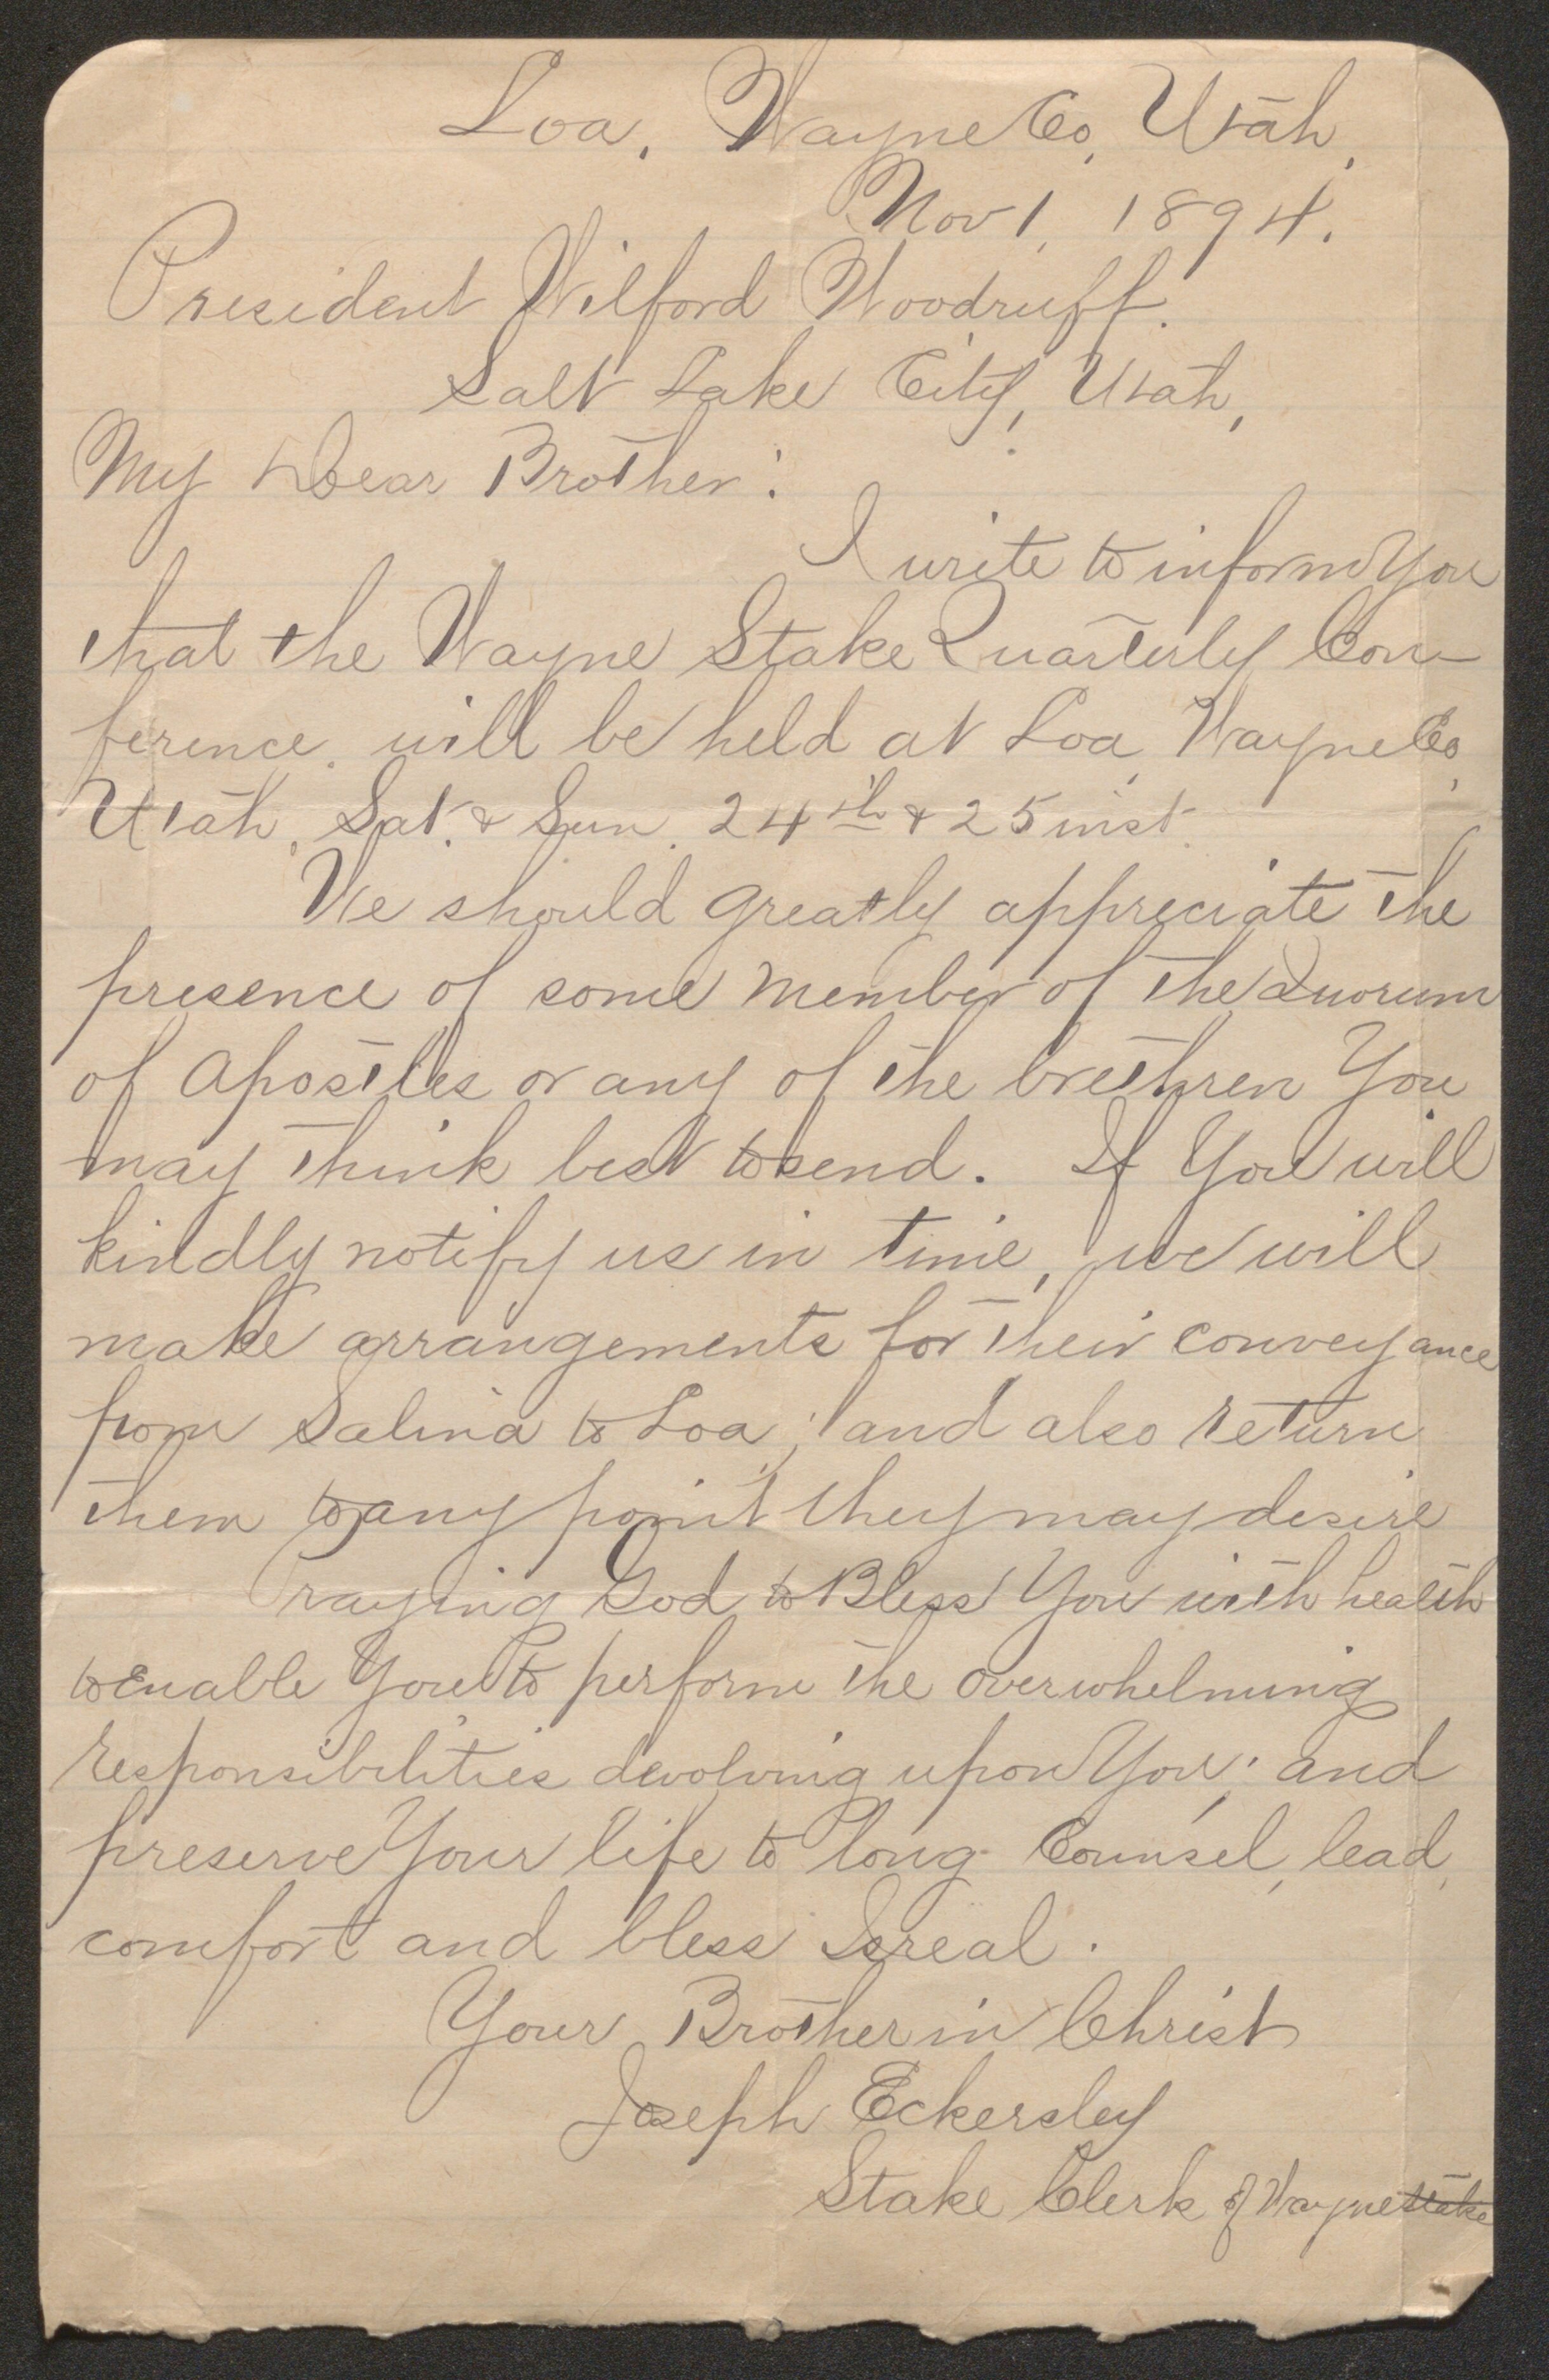 Loa, Wayne Co, Utah,
Nov 1, 1894.
President Wilford Woodruff.
Salt Lake City, Utah,
My Dear Brother:
I write to inform You
that the Wayne Stake Quarterly Con-
ference. will be held at Loa, Wayne Co,
Utah, Sat. & Sun. 24th & 25 inst.
We should greatly appreciate the
presence of some member of the Quorum
of Apostles or any of the brethren You
may think best to send. If You will
kindly notify us in time, we will
make arrangements for their conveyance
from Salina to Loa; and also return
them to any point they may desire
Praying God to Bless You with health
to Enable You to perform the overwhelming
responsibilities devolving upon You; and
preserve Your life to long Counsel, lead,
comfort and bless Isreal.
Your Brother in Christ
Joseph Eckersley
Stake Clerk of Wayne Stake